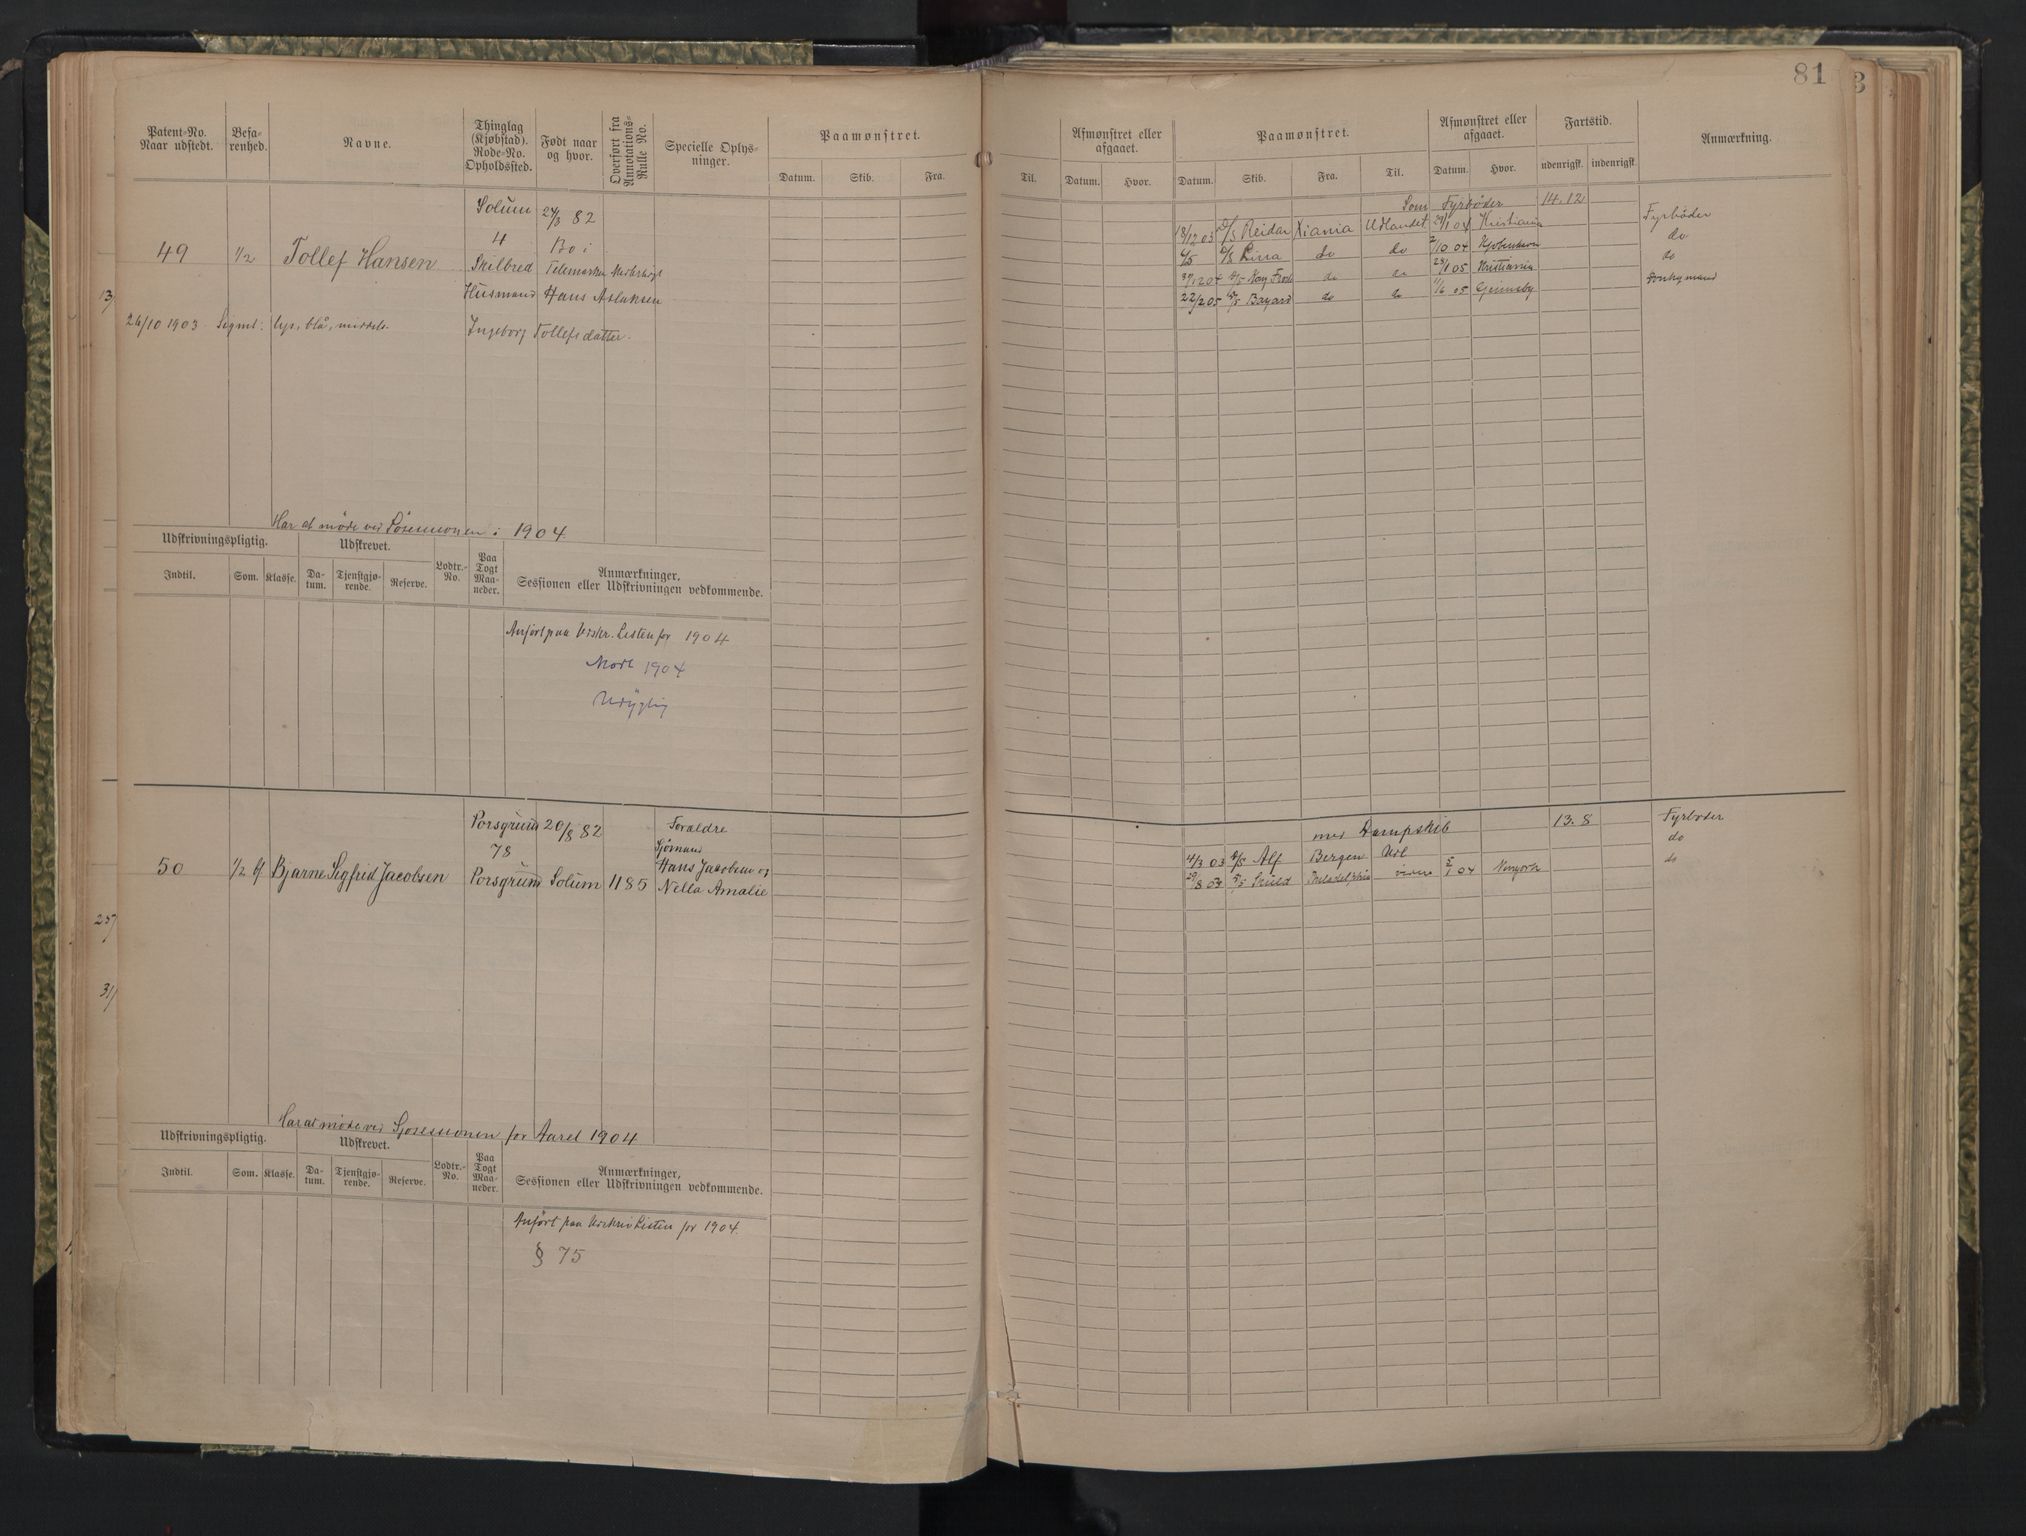 81
3
Patent-No. Naar udstedt.
Befarenhed.
Navne.
Thinglag (Kjøbstad). Rode-No. Opholdssted.
Født naar og hvor.
Overført fra Annotations-Rulle No.
Specielle Oplysninger.
Paamønstret.
Datum. Skib. Fra.
Til.
Afmønstret eller afgaaet.
Datum. Hvor.
Paamønstret.
Datum. Skib. Fra. Til.
Afmønstret eller afgaaet.
Datum. Hvor.
Fartstid.
udenrigsk. indenrigsk.
Anmærkning.
Solum 24/3 82
4 Bø i
49 1/2 Tollef Hansen Skilbred Telemarken
Husmand Hans Aslaksen
26/10 1903 Signal: lys, blå, middels. Ingeborg Tollefsdatter.
Som Fyrbøder 14.12
18/12 03 D/S Reidar Xiania Udlandet Kristiania Fyrbøder
do do 2/10 04 Kjøbenhavn do
do do 05 Kristiania do
22/2 05 D/S Bayard do do 11/6 05 Grimsby Donkymand
Har at møde ved Søsessionen i 1904
Udskrivningspligtig. Udskrevet.
Lodtr.-No.
Paa Togt Maaneder.
Anmærkninger, Sessionen eller Udskrivningen vedkommende.
Indtil. Som. Klasse. Datum. Tjenstgjørende. Reserve.
Anført paa Udskr. Listen for 1904
Mødt 1904
Udygtig
Porsgrund 20/8 82 Forældre
78 Sjømand
50 1/2 Bjarne Sigfrid Jacobsen Porsgrund Solum 1185 Hans Jacobsen og
Nella Amalie
med Dampskib 13.8 Fyrbøder
4/3 03 D/S Alf Bergen Udl 5/1 04 Newyork do
29/8 04 D/S Skuld Philadelphia videre do
Har at møde ved Sjøsessionen for Aaret 1904
Udskrivningspligtig. Udskrevet.
Lodtr.-No.
Paa Togt Maaneder.
Anmærkninger, Sessionen eller Udskrivningen vedkommende.
Indtil. Som. Klasse. Datum. Tjenstgjørende. Reserve.
Anført paa Udskriv Listen for 1904.
§ 75